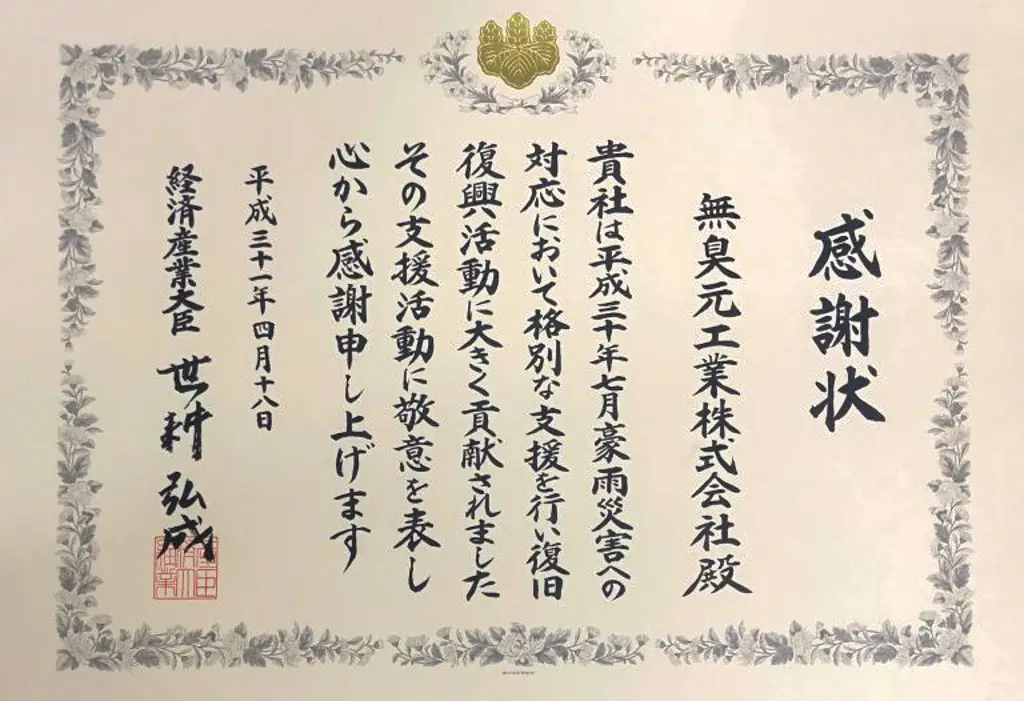 感謝状
無臭元工業株式会社殿
貴社は平成三十年七月豪雨災害への
対応において格別な支援を行い復旧
復興活動に大きく貢献されました
その支援活動に敬意を表し
心から感謝申し上げます
平成三十一年四月十八日
経済産業大臣 世耕弘成